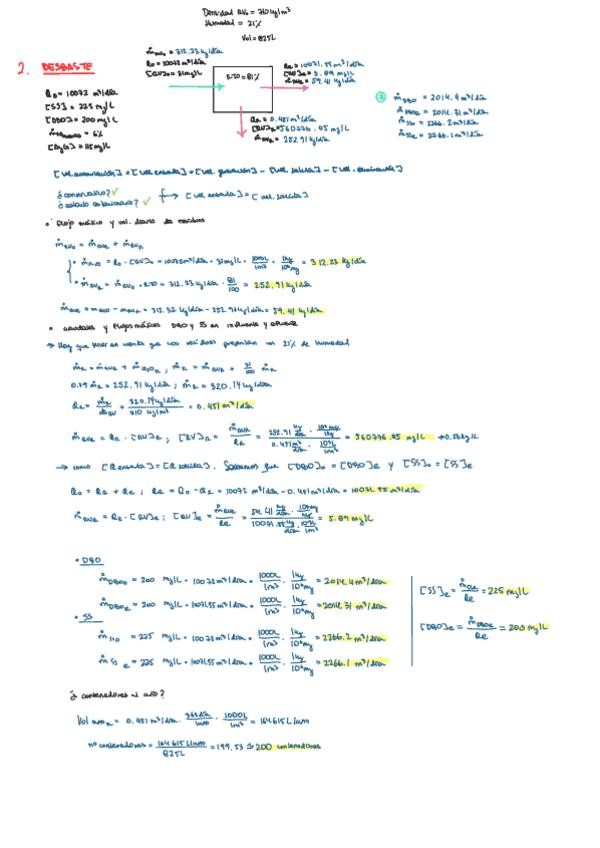 Densidad RVs = 710 kg/m³
Humedad = 21%
Vol = 825L
2. DESBASTE
Q₀ = 10072 m³/día
[SS] = 225 mg/L
[DBO] = 200 mg/L
= 6%
= 115 mg/L
= 312.23 kg/día
Q₀ = 10072 m³/día
[RV]₀ = 31 mg/L
RTO = 81%
Qe = 10071.55 m³/día
[RV]e = 5.89 mg/L
ṁRVe = 59.41 kg/día
QR = 0.451 m³/día
[RV]R = 560776.05 mg/L
ṁRVR = 252.91 kg/día
ṁDBO = 2014.4 m³/día
ṁDBOe = 2014.31 m³/día
ṁSS = 2266.2 m³/día
ṁSSe = 2266.1 m³/día
[vel. acumulación] = [vel. entrada] + [vel. generación] - [vel. salida] - [vel. eliminación]
¿conservativo? ✓
¿estado estacionario? ✓ → [vel. entrada] = [vel. salida]
• Flujo másico y vol. diario de residuos
ṁRV₀ = ṁRVe + ṁRVR
• ṁRV₀ = Q₀ · [RV]₀ = 10072 m³/día · 31 mg/L · 1000L/1m³ · 1kg/10⁶mg = 312.23 kg/día
• ṁRVR = ṁRV₀ · RTO = 312.23 kg/día · 81/100 = 252.91 kg/día
ṁRVe = ṁRV₀ - ṁRVR = 312.32 kg/día - 252.91 kg/día = 59.41 kg/día
• caudales y flujos másicos DBO y SS en influente y efluente
→ Hay que tener en cuenta que los residuos presentan un 21% de humedad
ṁR = ṁRVR + ṁH₂OR ; ṁR = ṁRVR + 21/100 ṁR
0.79 ṁR = 252.91 kg/día ; ṁR = 320.14 kg/día
QR = ṁR/dRV = 320.14 kg/día / 710 kg/m³ = 0.451 m³/día
ṁRVR = QR · [RV]R ; [RV]R = ṁRVR/QR = 252.91 kg/día · 10⁶mg/1kg / 0.451 m³/día · 10³L/1m³ = 560776.05 mg/L
→ como [Q entrada] = [Q salida]. Sabemos que [DBO]₀ = [DBO]e y [SS]₀ = [SS]e
Q₀ = Qe + QR ; Qe = Q₀ - QR = 10072 m³/día - 0.451 m³/día = 10071.55 m³/día
ṁRVe = Qe · [RV]e ; [RV]e = ṁRVe/Qe = 59.41 kg/día · 10⁶mg/1kg / 10071.55 m³/día · 10³L/1m³ = 5.89 mg/L
• DBO
ṁDBO₀ = 200 mg/L · 10072 m³/día · 1000L/1m³ · 1kg/10⁶mg = 2014.4 m³/día
ṁDBOe = 200 mg/L · 10071.55 m³/día · 1000L/1m³ · 1kg/10⁶mg = 2014.31 m³/día
• SS
ṁSS₀ = 225 mg/L · 10072 m³/día · 1000L/1m³ · 1kg/10⁶mg = 2266.2 m³/día
ṁSSe = 225 mg/L · 10071.55 m³/día · 1000L/1m³ · 1kg/10⁶mg = 2266.1 m³/día
[SS]e = ṁSSe/Qe = 225 mg/L
[DBO]e = ṁDBOe/Qe = 200 mg/L
¿contenedores al año?
Vol = 0.451 m³/día · 365día/1año · 1000L/1m³ = 164615 L/año
nº contenedores = 164615 L/año / 825L = 199.53 ≃ 200 contenedores